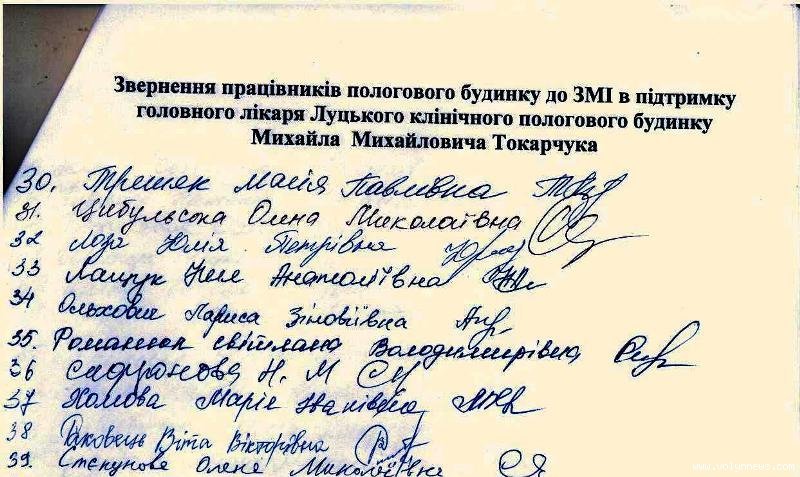 Звернення працівників пологового будинку до ЗМІ в підтримку
головного лікаря Луцького клінічного пологового будинку
Михайла Михайловича Токарчука
30. Трешек Марія Павлівна
31. Цибульська Олена Миколаївна
32 Лоза Юлія Петрівна
33 Лащук Неля Анатоліївна
34 Ольхович Лариса Зіновіївна
35. Романюк Світлана Володимирівна
36 Сафронова Н. М
37 Хомова Марія Іванівна
38 Раковець Віта Вікторівна
39. Степунова Олена Миколаївна
www.volynnews.com